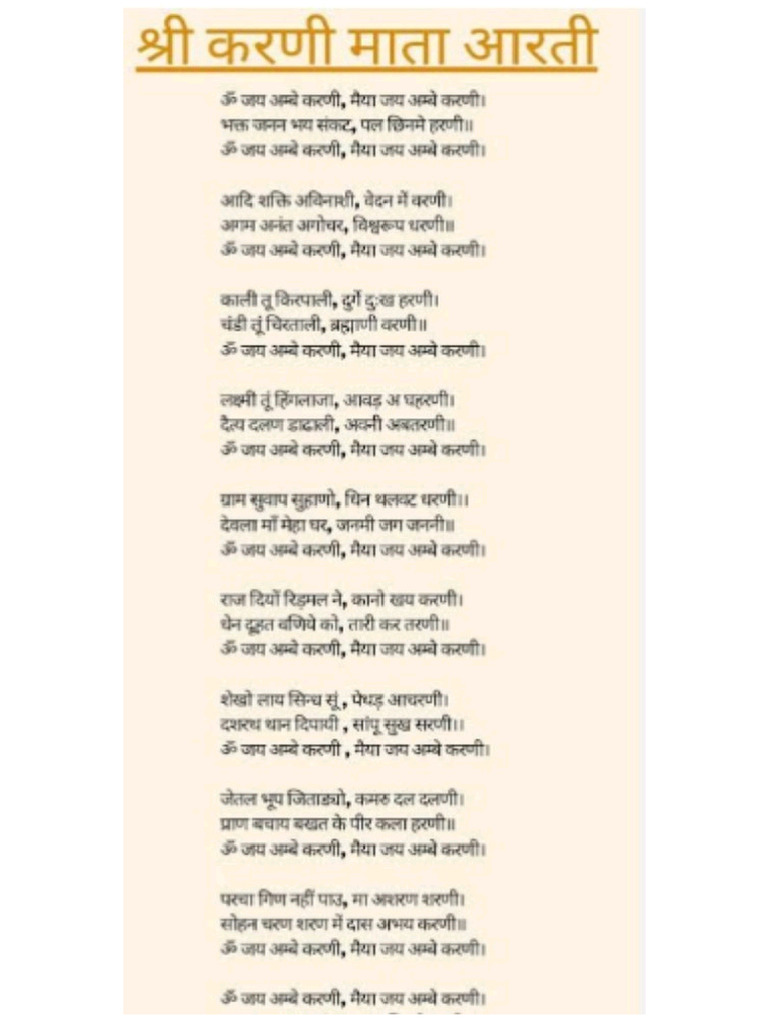 श्री करणी माता आरती
ॐ जय अम्बे करणी, मैया जय अम्बे करणी।
भक्त जनन भय संकट, पल छिनमे हरणी॥
ॐ जय अम्बे करणी, मैया जय अम्बे करणी।
आदि शक्ति अविनाशी, वेदन में वरणी।
अगम अनंत अगोचर, विश्वरूप धरणी॥
ॐ जय अम्बे करणी, मैया जय अम्बे करणी।
काली तू किरपाली, दुर्गे दुःख हरणी।
चंडी तूं चिरताली, ब्रह्माणी वरणी॥
ॐ जय अम्बे करणी, मैया जय अम्बे करणी।
लक्ष्मी तूं हिंगलाजा, आवड़ अ घहरणी।
दैत्य दलण डाढाली, अवनी अवतरणी॥
ॐ जय अम्बे करणी, मैया जय अम्बे करणी।
ग्राम सुवाप सुहाणो, धिन थलवट धरणी।।
देवला माँ मेहा घर, जनमी जग जननी॥
ॐ जय अम्बे करणी, मैया जय अम्बे करणी।
राज दियों रिड़मल ने, कानो खय करणी।
धेन दूहत वणिये को, तारी कर तरणी॥
ॐ जय अम्बे करणी, मैया जय अम्बे करणी।
शेखो लाय सिन्ध सूं , पेथड़ आचरणी।
दशरथ थान दिपायी , सांपू सुख सरणी।।
ॐ जय अम्बे करणी , मैया जय अम्बे करणी।
जेतल भूप जिताड्यो, कमरु दल दलणी।
प्राण बचाय बखत के पीर कला हरणी॥
ॐ जय अम्बे करणी, मैया जय अम्बे करणी।
परचा गिण नहीं पाउ, मा अशरण शरणी।
सोहन चरण शरण में दास अभय करणी॥
ॐ जय अम्बे करणी, मैया जय अम्बे करणी।
ॐ जय अम्बे करणी, मैया जय अम्बे करणी।